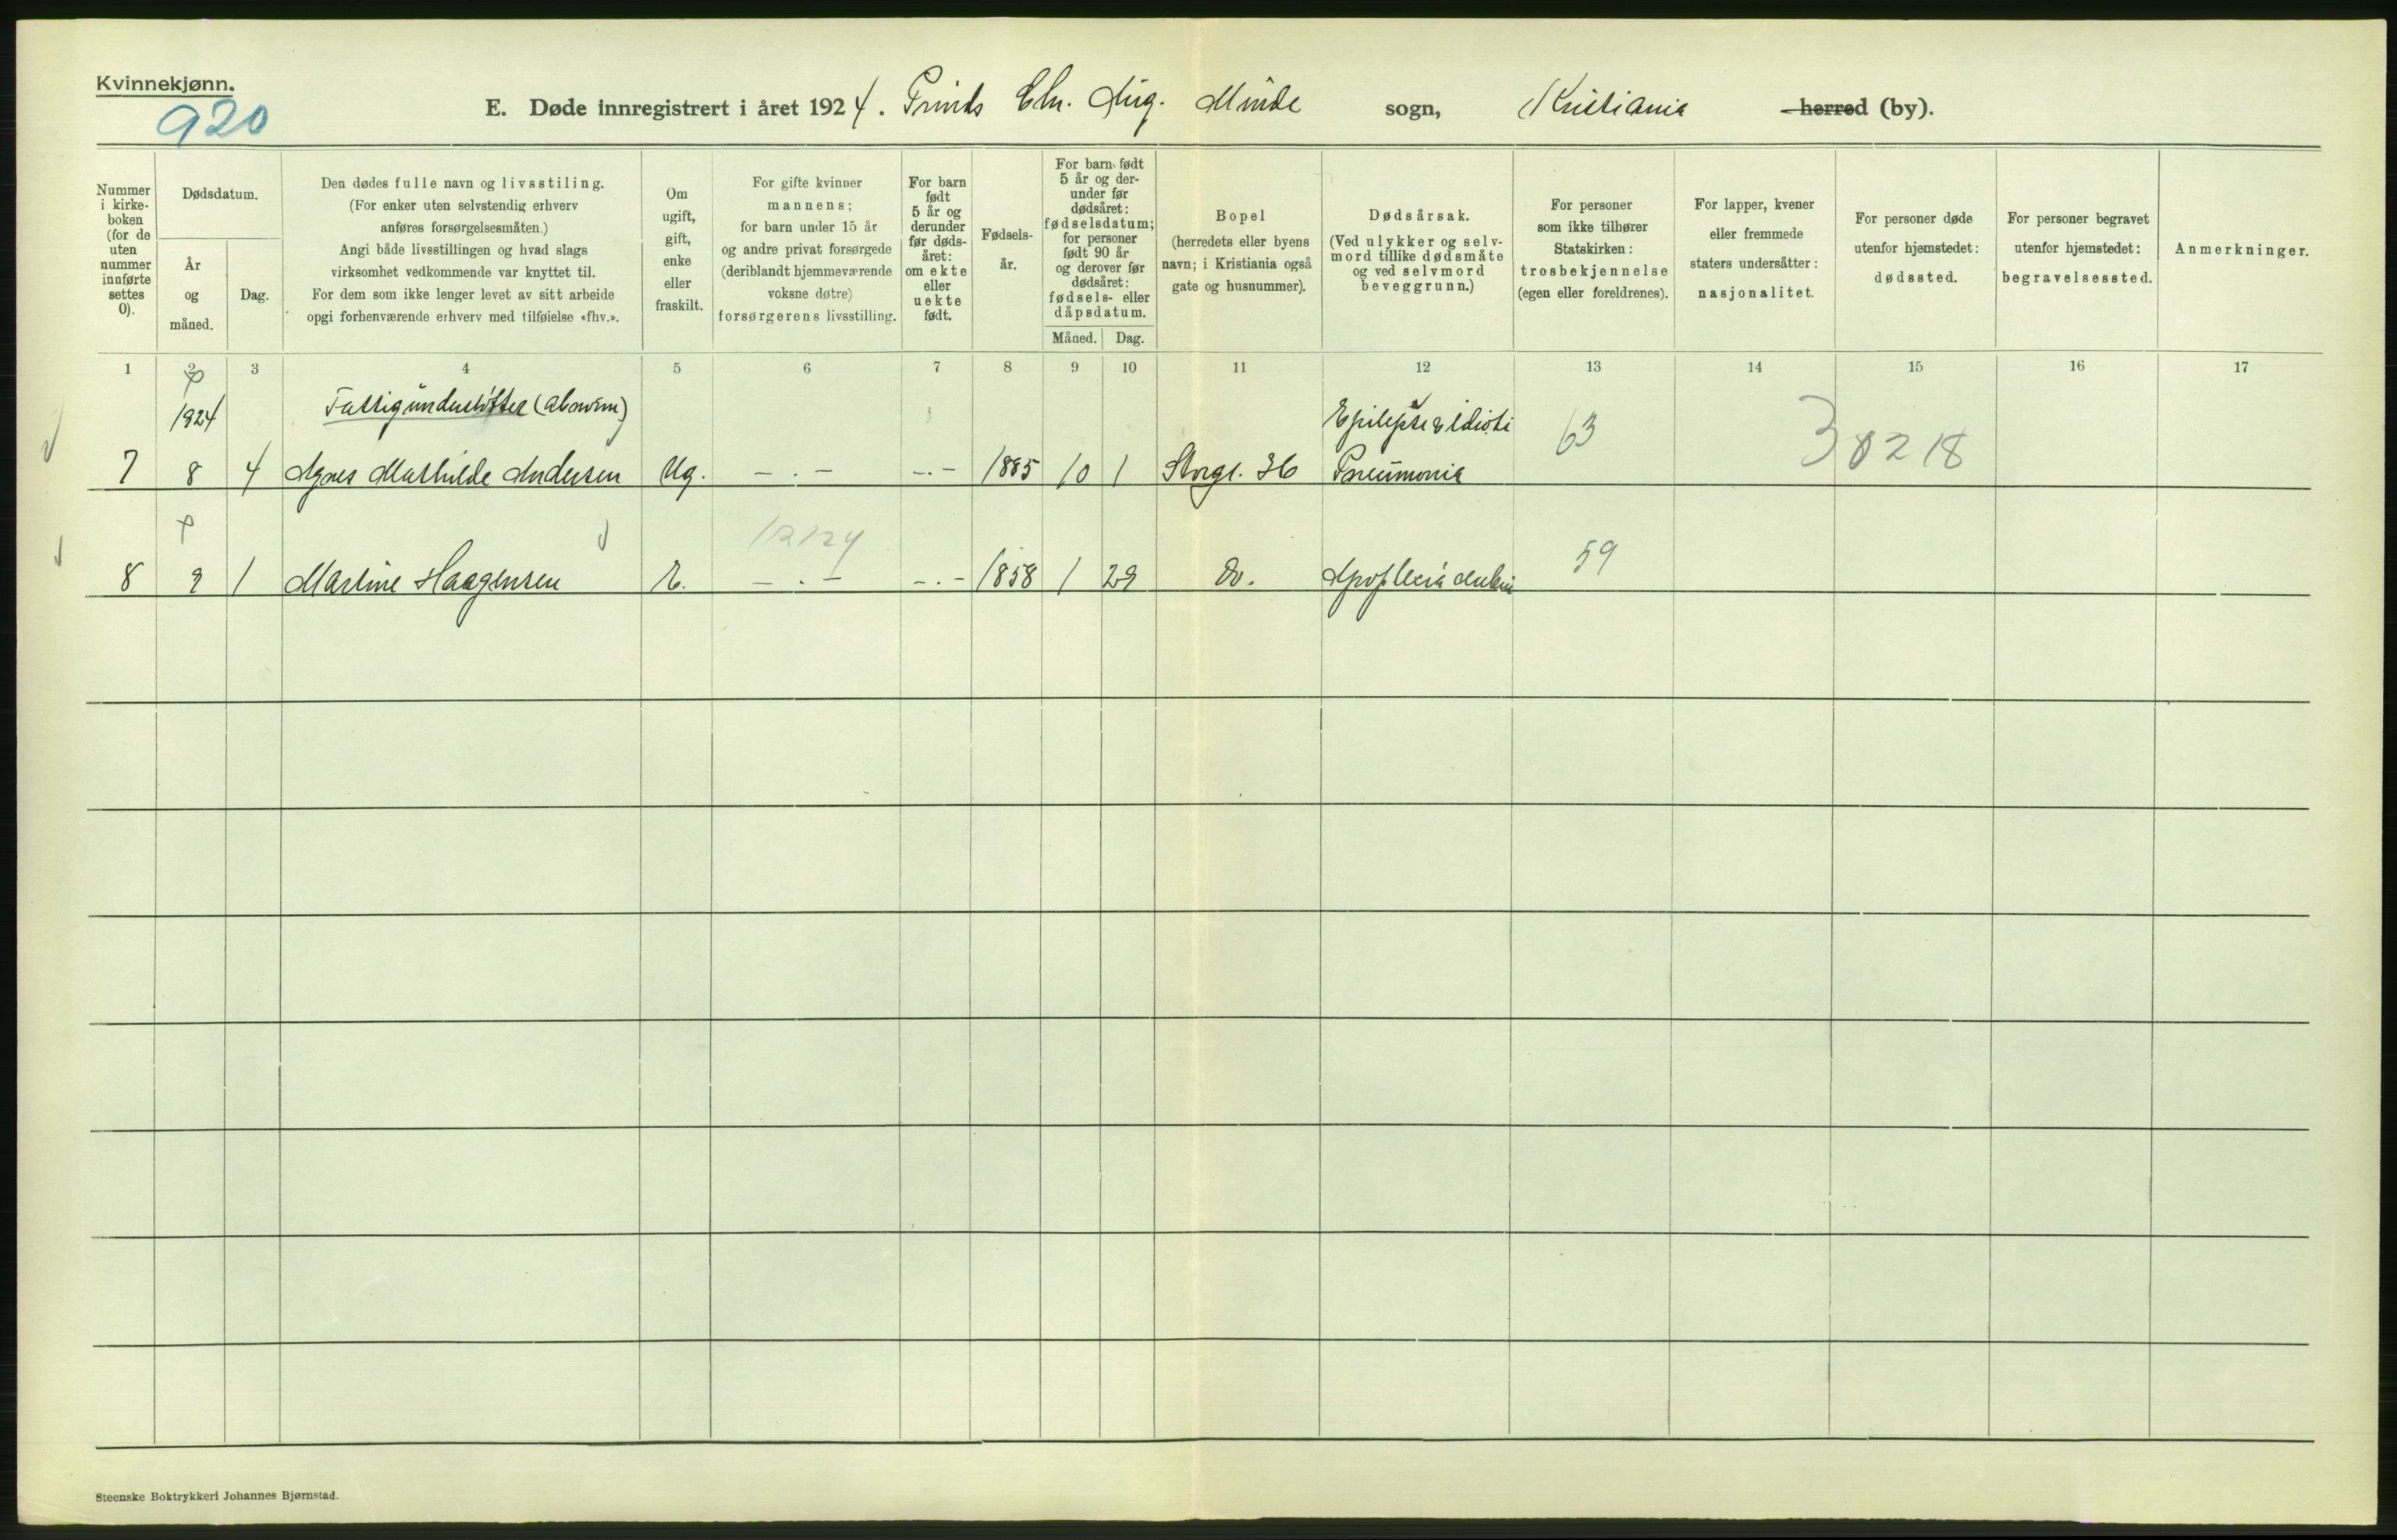 Kvinnekjønn.
920
E. Døde innregistrert i året 1924. Prinds Chr. Aug. Minde sogn, Kristiania herred (by).
Nummer i kirkeboken (for de uten nummer innførte settes 0).
Dødsdatum.
År og måned.
Dag.
Den dødes fulle navn og livsstiling.
(For enker uten selvstendig erhverv
anføres forsørgelsesmåten.)
Angi både livsstillingen og hvad slags
virksomhet vedkommende var knyttet til.
For dem som ikke lenger levet av sitt arbeide
opgi forhenværende erhverv med tilføielse «fhv.».
Om
ugift,
gift,
enke
eller
fraskilt.
For gifte kvinner
mannens;
for barn under 15 år
og andre privat forsørgede
(deriblandt hjemmeværende
voksne døtre)
forsørgerens livsstilling.
For barn
født
5 år og
derunder
før døds-
året:
om ekte
eller
uekte
født.
Fødsels-
år.
For barn født
5 år og der-
under før
dødsåret:
fødselsdatum;
for personer
født 90 år
og derover før
dødsåret:
fødsels- eller
dåpsdatum.
Måned. Dag.
Bopel
(herredets eller byens
navn; i Kristiania også
gate og husnummer).
Dødsårsak.
(Ved ulykker og selv-
mord tillike dødsmåte
og ved selvmord
beveggrunn.)
For personer
som ikke tilhører
Statskirken:
trosbekjennelse
(egen eller foreldrenes).
For lapper, kvener
eller fremmede
staters undersåtter:
nasjonalitet.
For personer døde
utenfor hjemstedet:
dødssted.
For personer begravet
utenfor hjemstedet:
begravelsessted.
Anmerkninger.
1 2 3 4 5 6 7 8 9 10 11 12 13 14 15 16 17
1924 Fattigunderstøttet Epilepsi & Idioti 63 38218
7 8 4 Agnes Mathilde Andersen Ug. — . — —.— 1885 10 1 Storgt. 36 Pneumonia
12124 59
8 9 1 Martine Haagensen E. — . — —.— 1858 1 29 Do. Apoplexia
Steenske Boktrykkeri Johannes Bjørnstad.